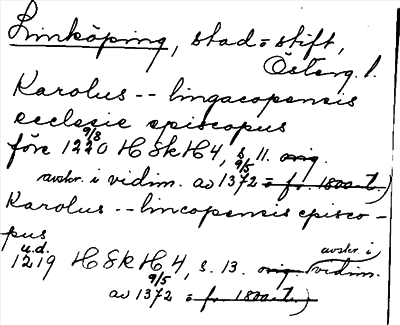 Linköping, stad = stift,
Österg. l.
Karolus -- lingacopensis
ecclesie episcopus
9/8
före 1220 H SkH 4, s. 11. orig.
9/5
avskr. i vidim. av 1372 = fr. 1800-t.)
Karolus -- lincopensis episco-
pus
u.d. avskr. i
1219 H SkH 4, s. 13. orig. (vidim.
9/5
av 1372 = fr. 1800-t.)